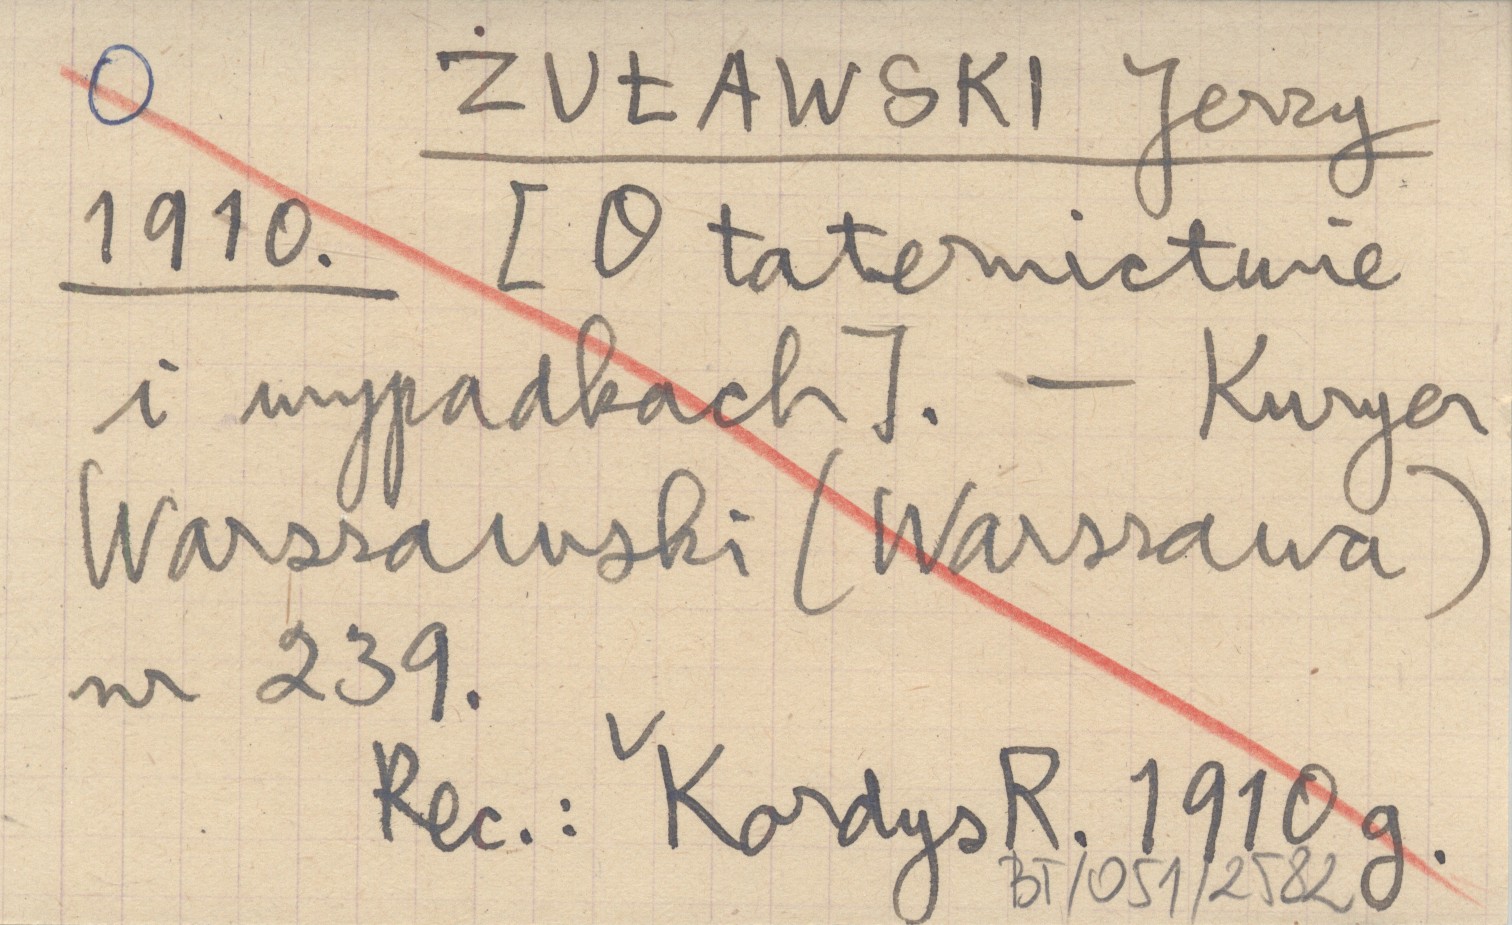 O ŻUŁAWSKI Jerzy
1910. [O taternictwie
i wypadkach]. — Kuryer
Warszawski (Warszawa)
nr 239.
Rec.: ✓Kordys R. 1910g.
BT/051/2582